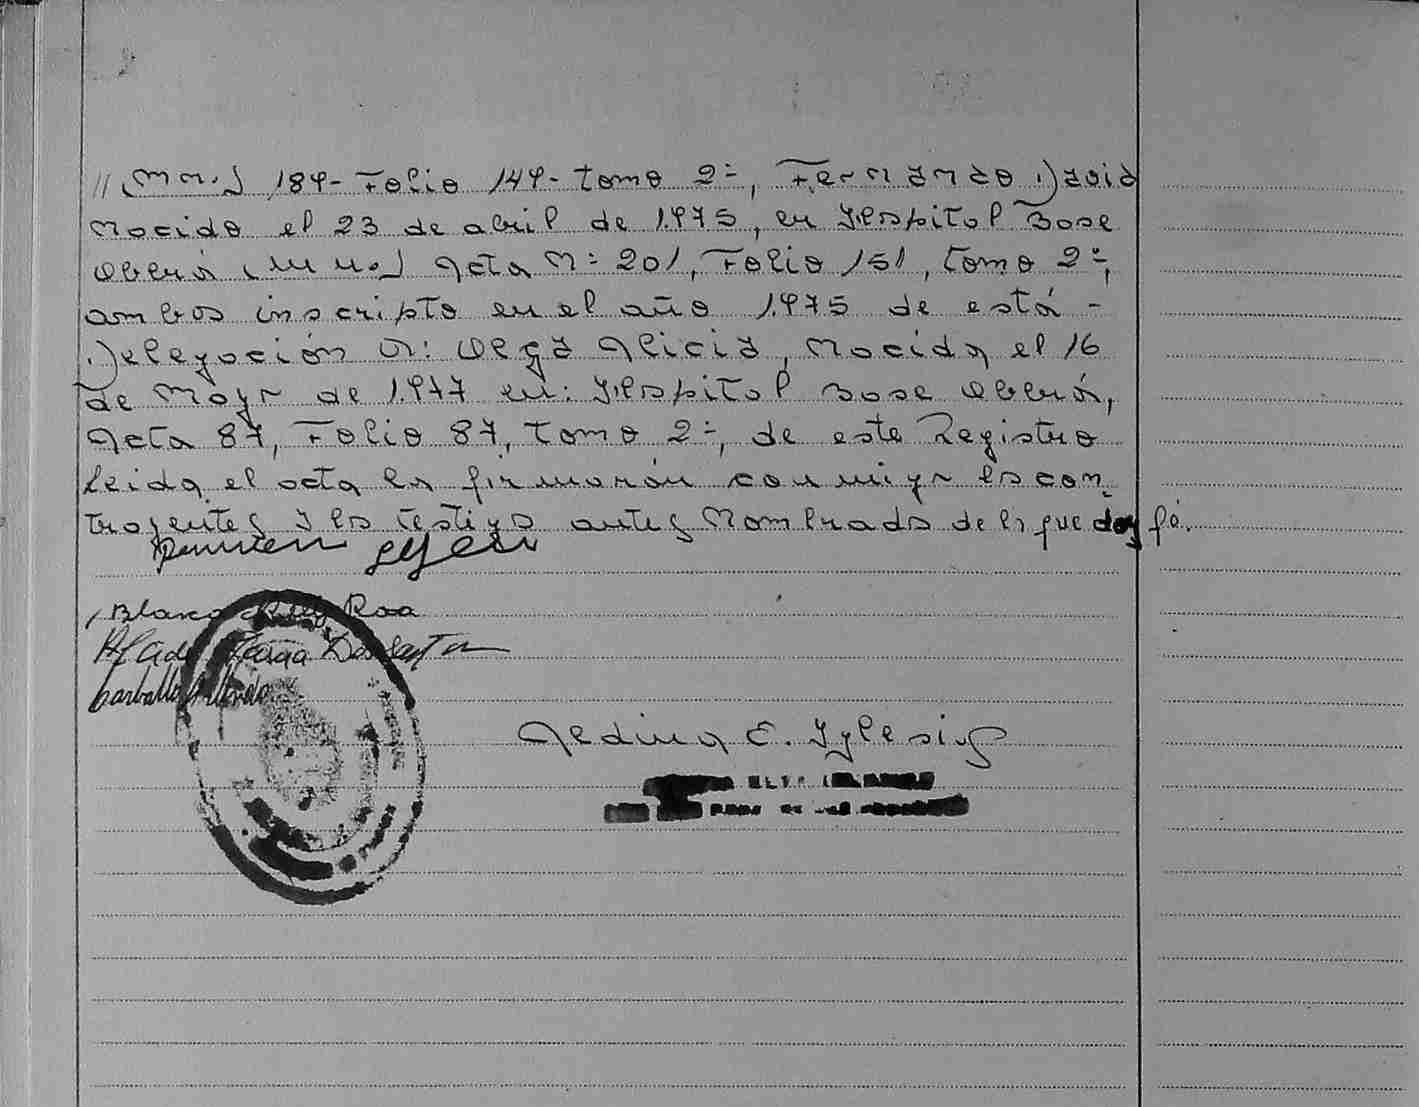 // (Mns.) 184- Folio 144- tomo 2-, Fernando David
Nacido el 23 de abril de 1.975, en Hospital Base
Oberá (Mns.) Acta N: 201, Folio 151, tomo 2-,
ambos inscripto en el año 1.975 de está -
Delegación Or: Olga Alicia, Nacida el 16
de Mayo de 1.977 en: Hospital Base Oberá,
Acta 87, Folio 87, tomo 2-, de este Registro
leida el acta la firmarán conmigo los con_
trayentes y los testigo antes Nombrado de lo que doy fé.
Blanca Roa
Dos Santos
Carballo
E. Iglesias